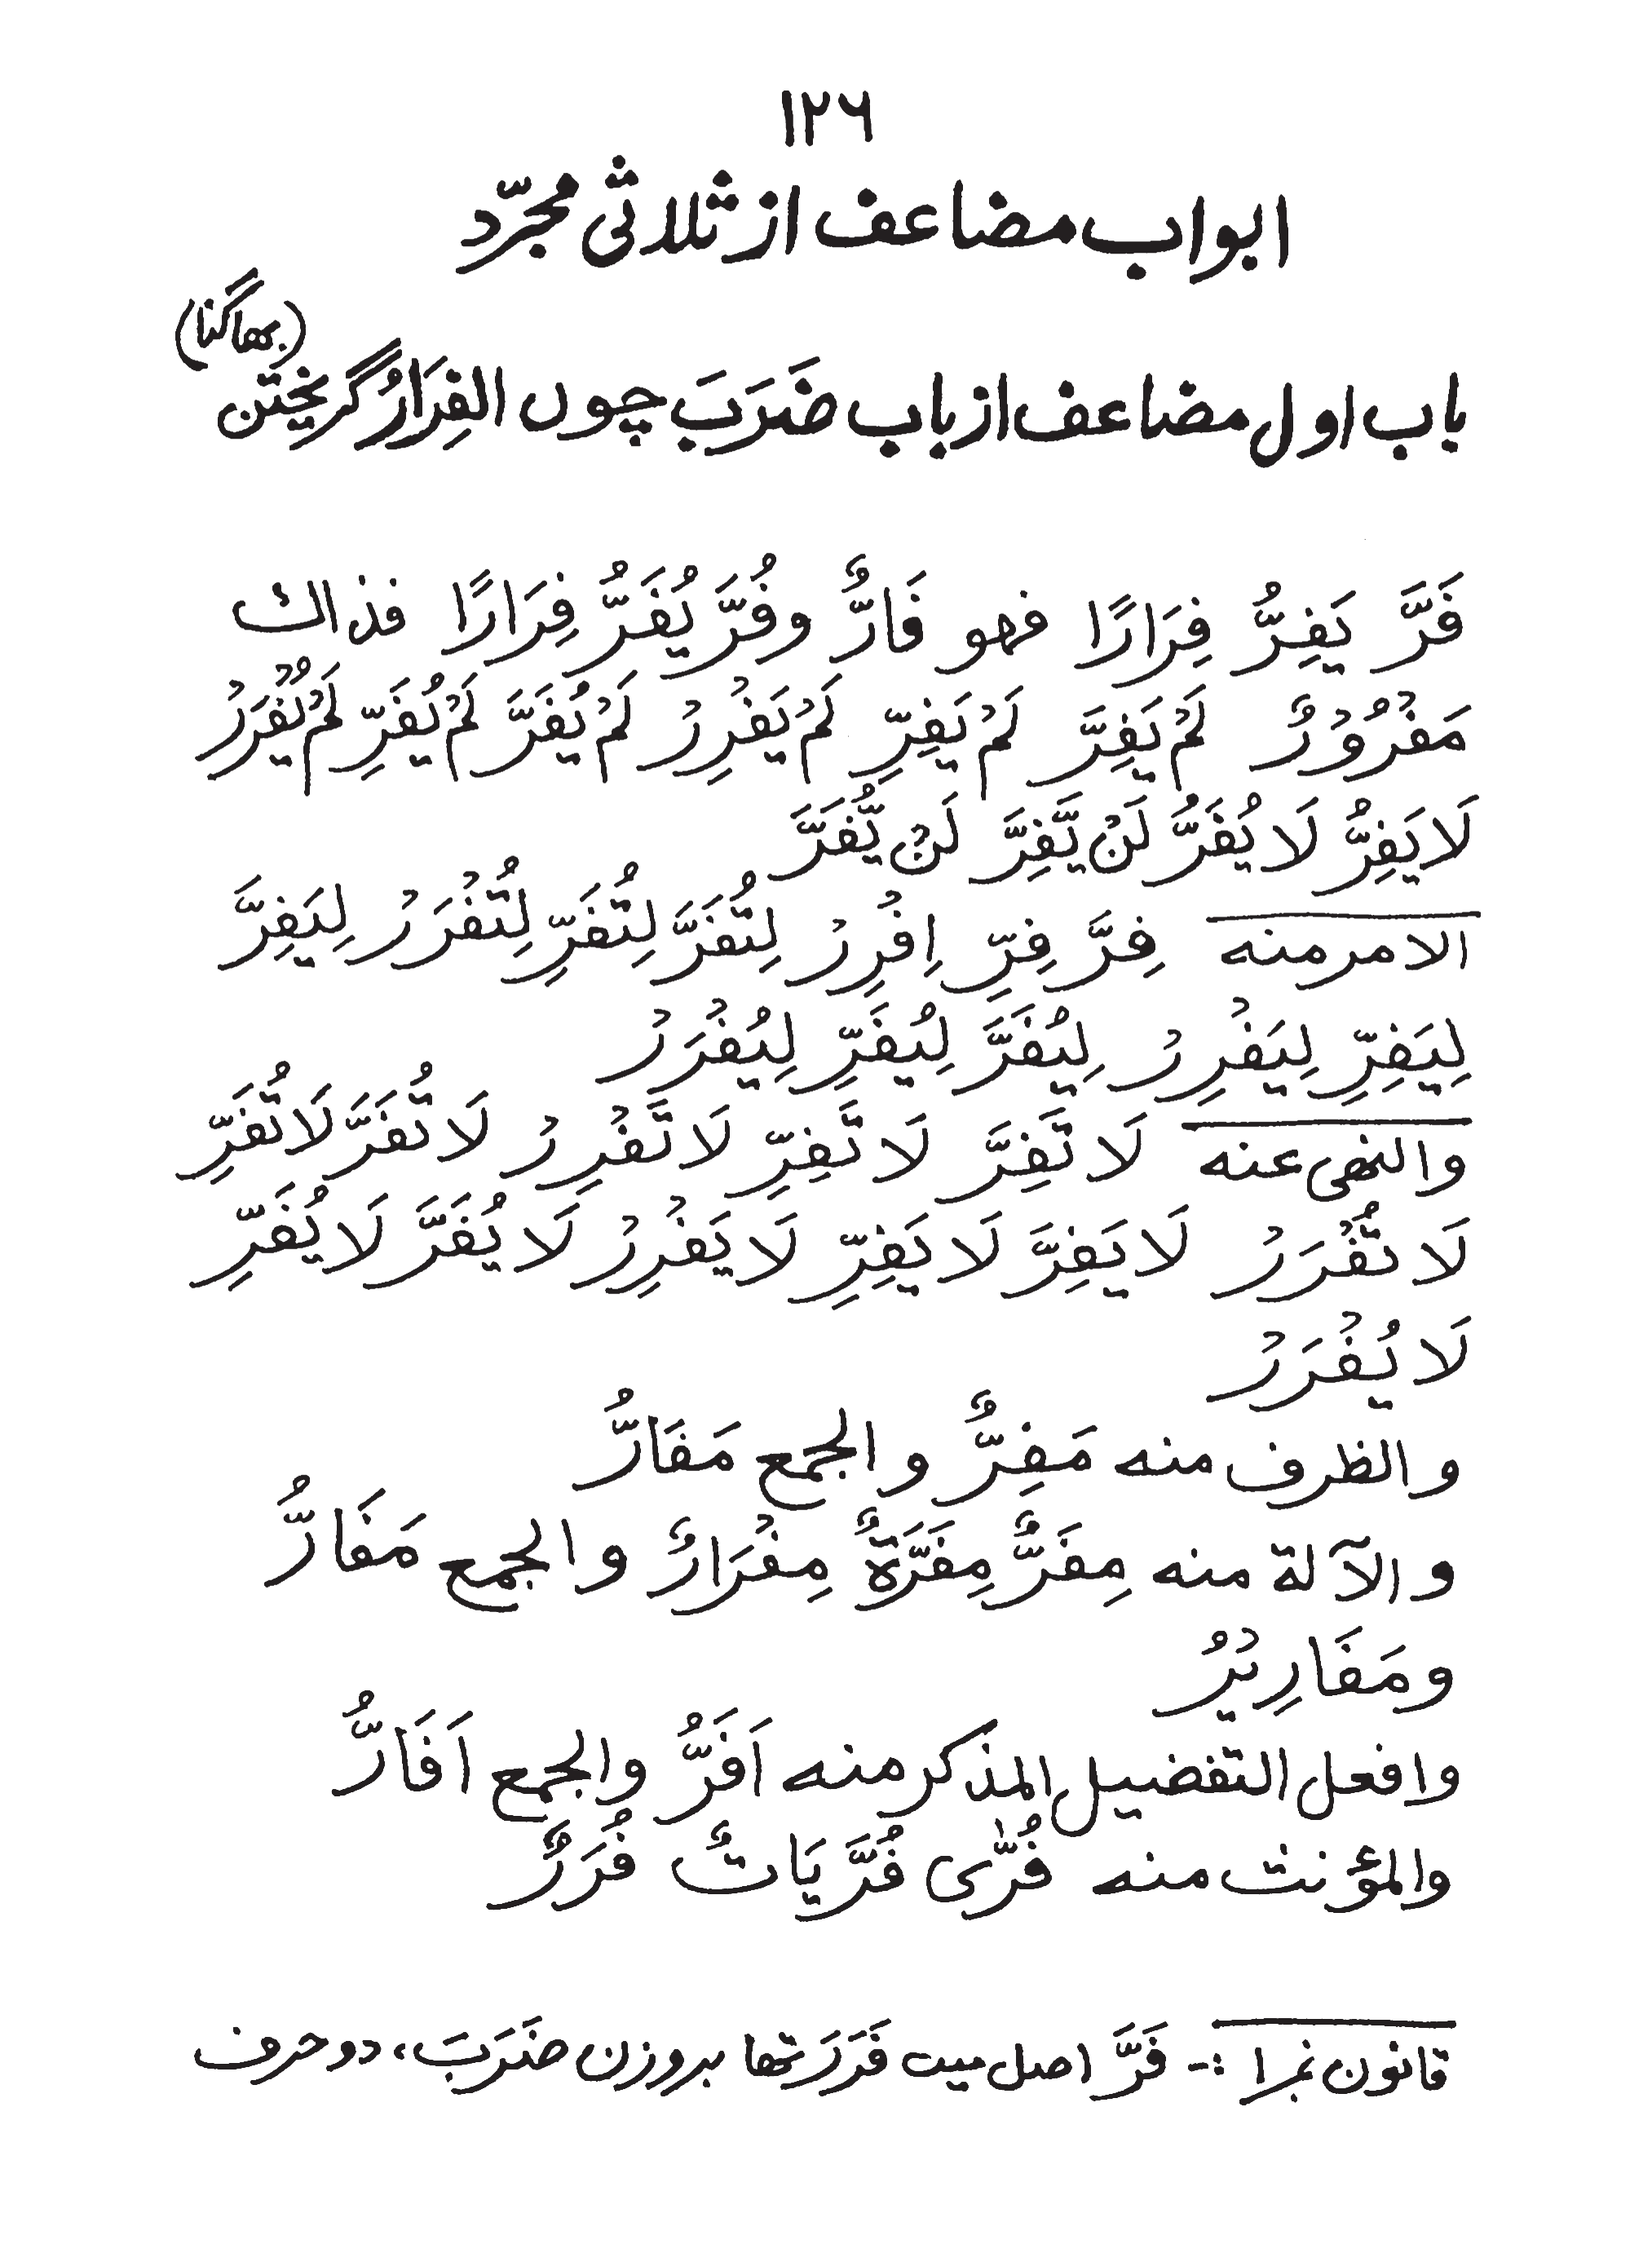 ١٢٦
ابواب مضاعف از ثلاثی مجرّد
(بھاگنا)
باب اول مضاعف از باب ضَرَبَ چوں الفِرَارُ گریختن
فَرَّ يَفِرُّ فِرَارًا فهو فَارٌّ وفُرَّ يُفَرُّ فِرَارًا فذاك
مَفْرُوْرٌ لَمْ يَفِرَّ لَمْ يَفِرِّ لَمْ يَفْرِرْ لَمْ يُفَرَّ لَمْ يُفَرِّ لَمْ يُفْرَرْ
لَا يَفِرُّ لَا يُفَرُّ لَنْ يَّفِرَّ لَنْ يُّفَرَّ
الامر منه فِرَّ فِرِّ اِفْرِرْ لِتُفَرَّ لِتُفَرِّ لِتُفْرَرْ لِيَفِرَّ
لِيَفِرِّ لِيَفْرِرْ لِيُفَرَّ لِيُفَرِّ لِيُفْرَرْ
والنهى عنه لَا تَفِرَّ لَا تَفِرِّ لَا تَفْرِرْ لَا تُفَرَّ لَا تُفَرِّ
لَا تُفْرَرْ لَا يَفِرَّ لَا يَفِرِّ لَا يَفْرِرْ لَا يُفَرَّ لَا يُفَرِّ
لَا يُفْرَرْ
و الظرف منه مَفِرٌّ و الجمع مَفَارُّ
و الآلة منه مِفَرٌّ مِفَرَّةٌ مِفْرَارٌ و الجمع مَفَارُّ
ومَفَارِيْرُ
وافعل التفضيل المذكر منه اَفَرُّ والجمع اَفَارُّ
والمؤنث منه فُرّٰى فُرَّيَاتٌ فُرَرٌ
قانون نمبر ١ :- فَرَّ اصل میں فَرَرَ تھا بروزن ضَرَبَ، دو حرف